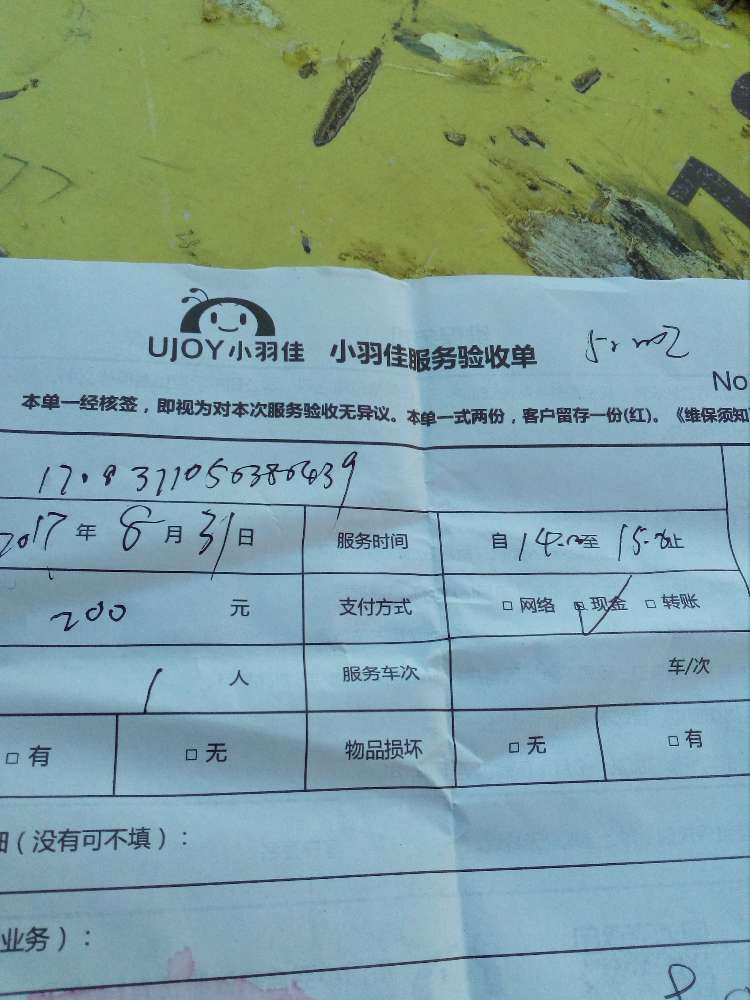 UJOY小羽佳 小羽佳服务验收单
No
本单一经核签，即视为对本次服务验收无异议。本单一式两份，客户留存一份(红)。《维保须知
2017年8月31日 服务时间 自14:00至15:00止
200 元 支付方式 □网络 □现金 □转账
1 人 服务车次 车/次
□有 □无 物品损坏 □无 □有
细（没有可不填）：
业务）：